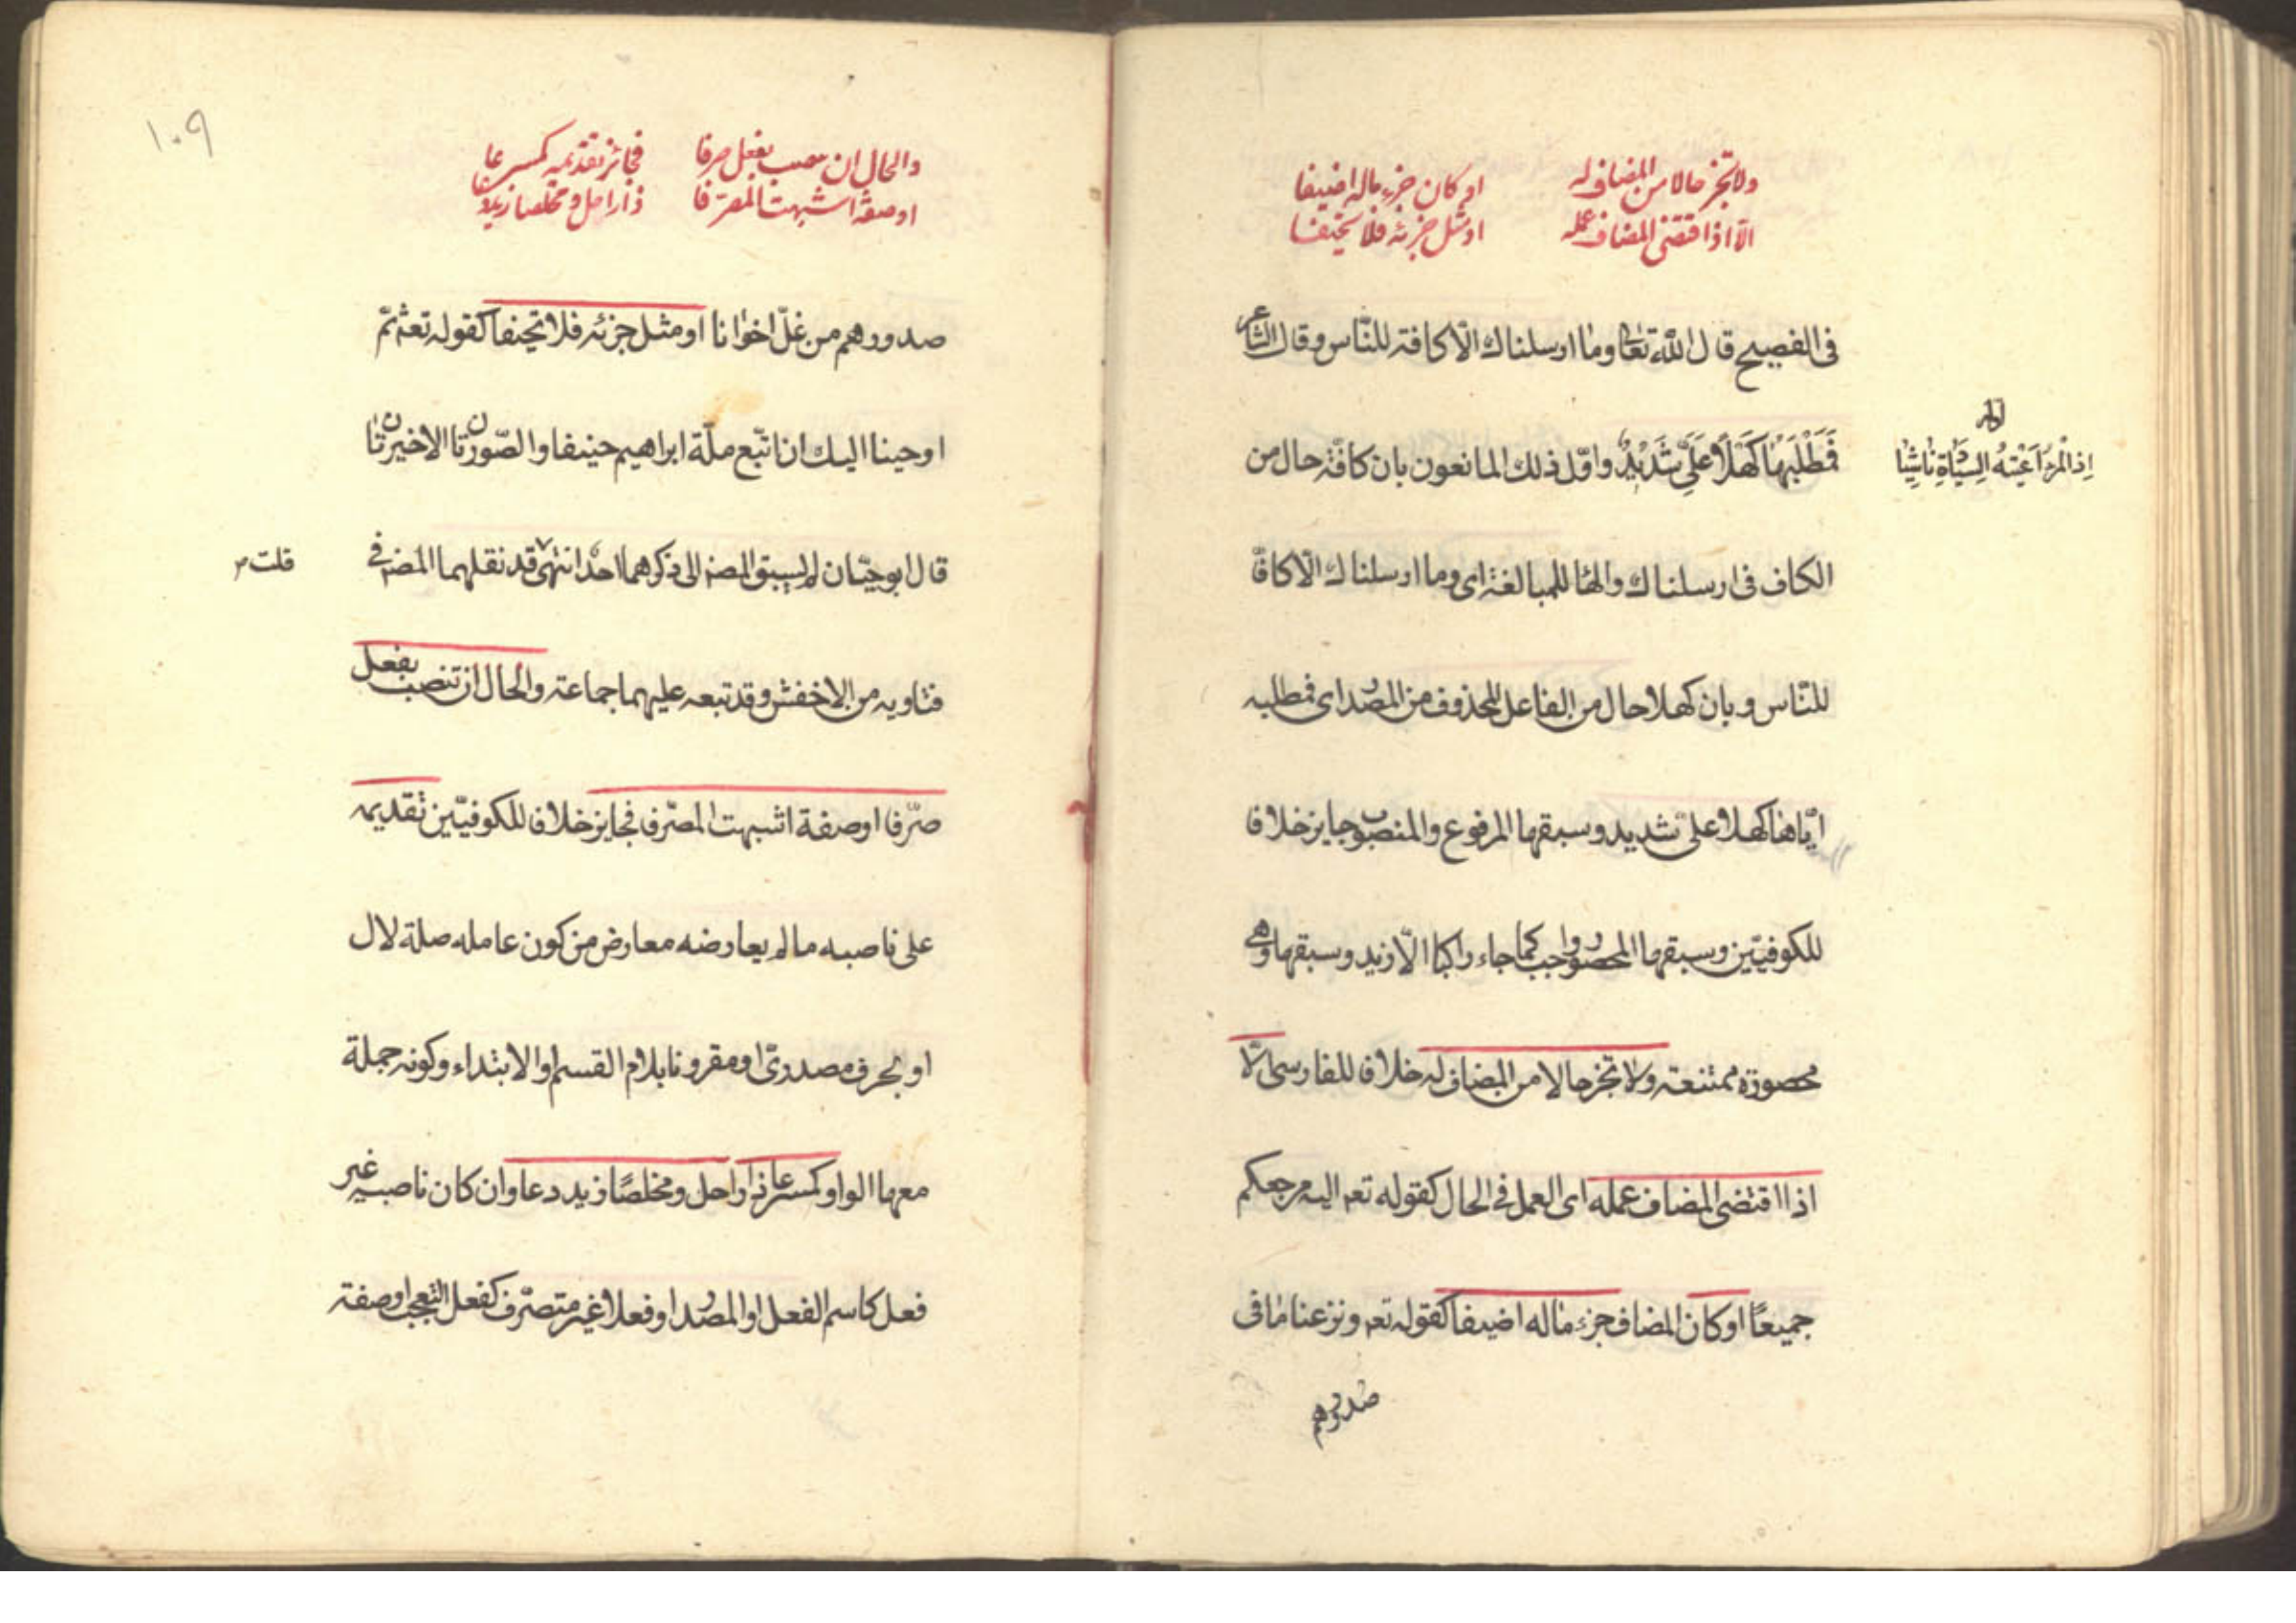 ولا تجز حالا من المضاف له او كان جزء ماله اضيفا
الا اذا اقتضى المضاف عمله او مثل جزئه فلا تحيفا
فى الفصيح قال الله تعالى وما ارسلناك الّا كافة للنّاس وقال الشاعر
اذا المرء اعيته السيادة ناشئا
فَمَطْلَبُهَا كَهْلًا عَلَيَّ شَدِيدٌ واوّل ذلك المانعون بان كافّة حال من
الكاف فى ارسلناك والها للمبالغة اى وما ارسلناك الّا كافّا
للنّاس وبان كهلا حال من الفاعل المحذوف من المصدر اى فمطلبه
ايّاها كهلا علىّ شديد وسبقها المرفوع والمنصوب جايز خلافا
للكوفيّين وسبقها المحصور واجب كما جاء راكبا الّا زيد وسبقها وهى
محصورة ممتنعة ولا تجز حالا من المضاف له خلافا للفارسى الّا
اذا اقتضى المضاف عمله اى العمل فى الحال كقوله تعم اليه مرجعكم
جميعًا او كان المضاف جزء ماله اضيفا كقوله تعم ونزعنا ما فى
صدورهم
١٠٩
والحال ان ينصب بفعل صرفا فجائز تقديمه كمسرعا
او صفة اشبهت المصرّفا ذا راحل ومخلصا زيد دعا
صدورهم من غلّ اخوانا او مثل جزئه فلا تحيفا كقوله تع ثمّ
اوحينا اليك ان اتّبع ملّة ابراهيم حنيفا والصّورتان الاخيرتان
قال ابو حيّان لم يسبق المصن الى ذكرهما احد انتهى قد نقلهما المصن فى
قلت
فتاويه من الاخفش وقد تبعه عليهما جماعة والحال ان تنصب بفعل
صرّفا او صفة اشبهت المصرّفا فجايز خلافا للكوفيّين تقديمه
على ناصبه ما لم يعارضه معارض من كون عامله صلة لال
او لحرف مصدرىّ او مقرونا بلام القسم او الابتداء وكونه جملة
معها الواو كمسرعا ذا راحل ومخلصًا زيد دعا وان كان ناصبه غير
فعل كاسم الفعل او المصدر او فعلا غير متصرّف كفعل التعجب او صفة